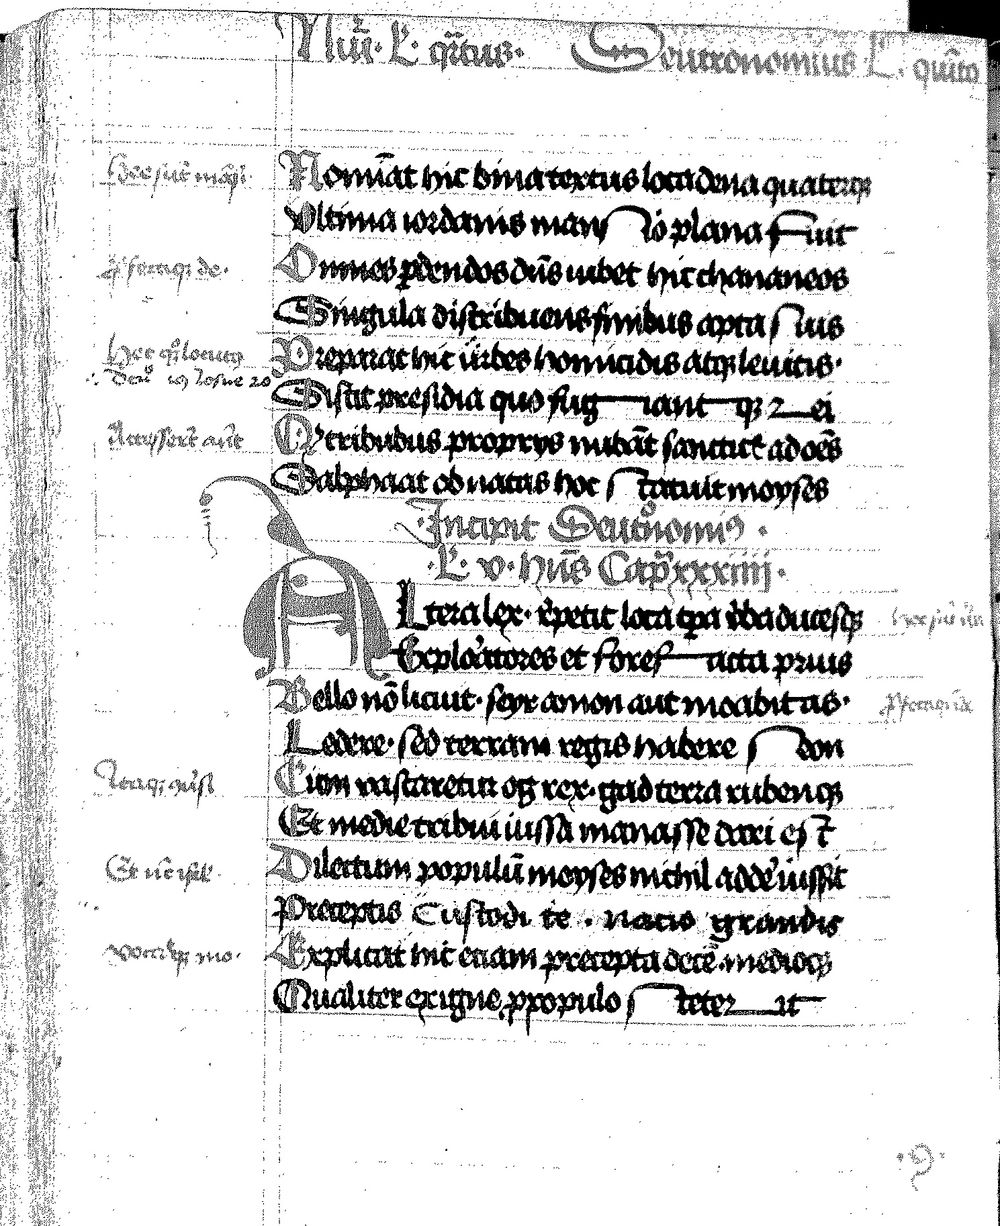 Nūi · L · q̄rtus · Deutronomius L · quīto
Hec sūt māſi · Nomīat hic bina textus loca dena quaterqꝫ
Vltima iordanis manſio plana fuit
Omnes ꝑdendos dn̄s iubet hic chananeos
Singula distribuens finibus apta ſuis
Hec q̄ꝫ locutꝯ Preparat hic urbes homicidis atqꝫ leuitis ·
Josue 20 Sistit presidia quo fugiant qꝫ rei
Accesserūt aūt Qͥ tribubus proprijs nubāt sanctitꝫ ad oēs
Salphaat ob natas hoc ſtatuit moyses
Incipit Deutͦnomiꝯ ·
· L · v · hn̄s Capͣ xxxiiii ·
Altera lex · repetit loca tpa v̄ba ducesqꝫ Hec sūt v̄ba
Exploratores et foreſ acta prius
Bello nō liciut · seyr amon aut moabitas ·
Ledere · sed terram regis habere ſeon
Cum vastaretur og rex · gad terra rubenqꝫ
Et medie tribui iussa manasse dari eſt
Et nūc isrl̄ Dilectum populū moyses nichil adde iussit
Preceptis Custodi te · natio grandis
vocauitqꝫ mo · Explicat hic etiam precepta decē mediocꝫ
Qualiter exigne ꝓ populo ſteterit